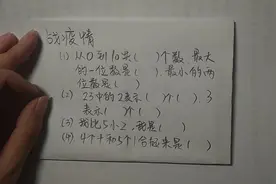 防疫情
(1) 从0到10共( )个数,最大
的一位数是( ),最小的两
位数是( )
(2) 23中的2表示( )个( ),3
表示( )个( )
(3) 我比5小2,我是( )
(4) 4个十和5个1合起来是( )